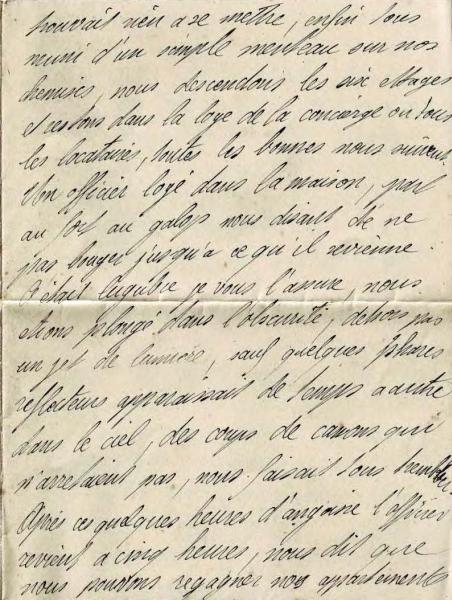 pouvait rien a se mettre, enfin tous
muni d'un simple manteau sur nos
chemises, nous descendons les six etages
et restons dans la loge de la concierge ou tous
les locataires, toutes les bonnes nous suivent.
Un officier logé dans la maison, part
au fort au galop nous disant de ne
pas bouger jusqu'a ce qu'il revienne.
C'était lugubre je vous l'assure, nous
etions plongé dans l'obscurité, dehors pas
un jet de lumière, sauf quelques phares
reflecteurs apparaissait de temps a autre
dans le ciel, des coups de canons qui
n'arretaient pas, nous faisait tous trembler.
Après ces quelques heures d'angoisse l'officier
revient a cinq heures, nous dit que
nous pouvons regagner nos appartements